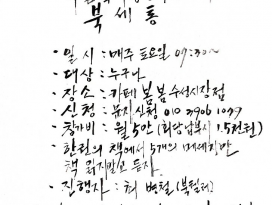 북세통
· 일시 : 매주 토요일 07:30~
· 대상 : 누구나
· 장소 : 카페 봄봄 수성시장점
· 신청 : 문자신청 010 3906 1099
· 참가비 : 월 5만 (회당 납부시 1.5천원)
· 한권의 책에서 5개의 메세지만
책 읽지말고 듣자.
· 진행자 : 최병철 (북필터)